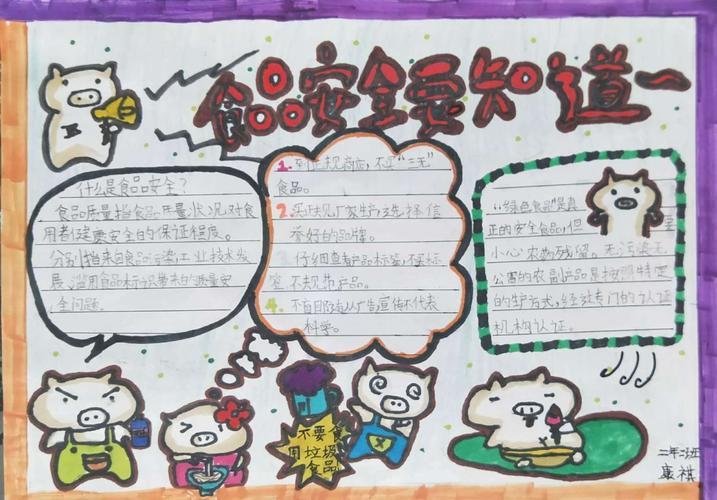 食品安全要知道
什么是食品安全？
食品质量指食品质量状况对食
用者健康安全的保证程度。
分别指来自食品污染工业技术发
展、滥用食品标识带来的质量安
全问题。
1. 到正规商店，不买“三无”
食品。
2. 买正规厂家生产，选择信
誉好的品牌。
仔细查看产品标签，不买标
签不规范产品。
4. 不盲目随从广告宣传不代表
科学。
“绿色食品”是真
正的安全食品，但
小心农物残留。无污染无
公害的农副产品是按照特定
的生产方式，经过专门的认证
机构认证。
不要食
用垃圾
食品
二年二班
康祺